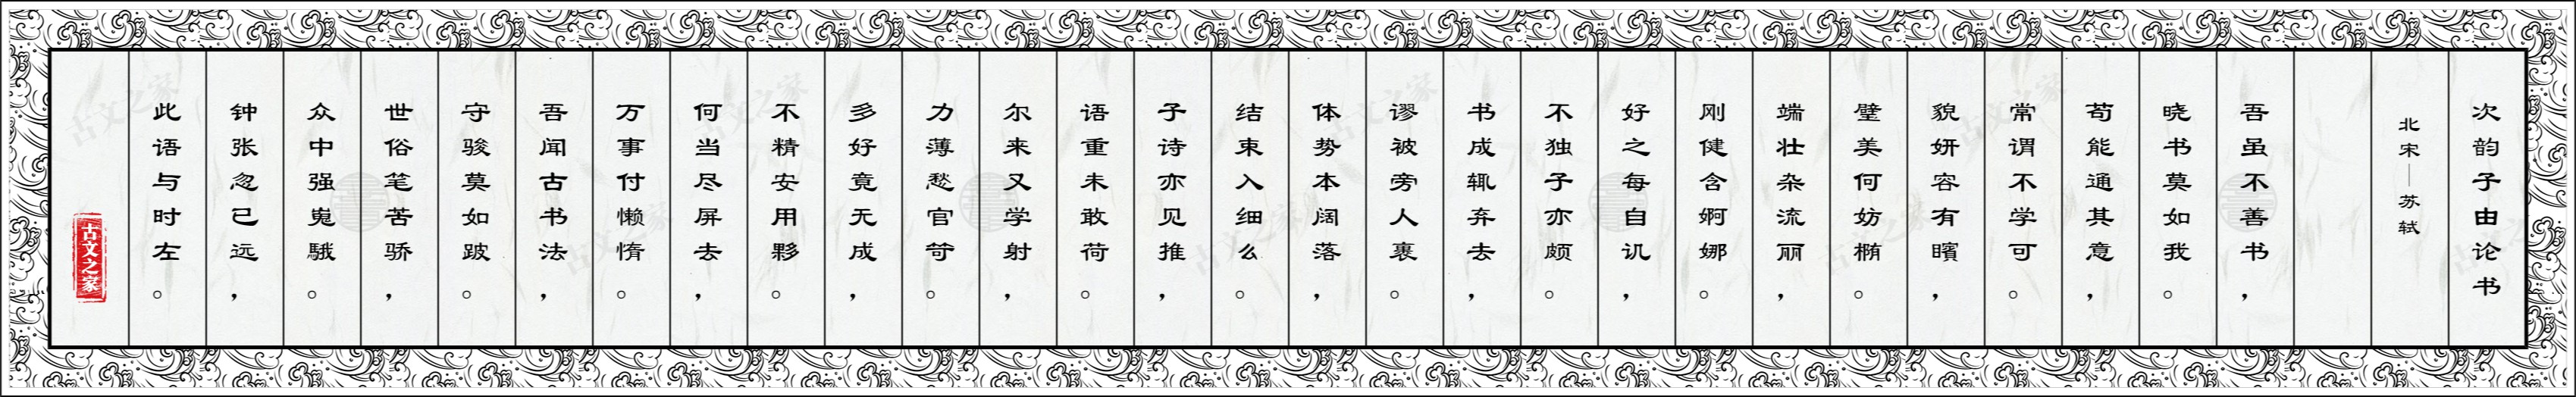 次韵子由论书
北宋—苏轼
吾虽不善书，
晓书莫如我。
苟能通其意，
常谓不学可。
貌妍容有矉，
璧美何妨椭。
端壮杂流丽，
刚健含婀娜。
好之每自讥，
不独子亦颇。
书成辄弃去，
谬被旁人裹。
体势本阔落，
结束入细么。
子诗亦见推，
语重未敢荷。
尔来又学射，
力薄愁官笴。
多好竟无成，
不精安用夥。
何当尽屏去，
万事付懒惰。
吾闻古书法，
守骏莫如跛。
世俗笔苦骄，
众中强嵬騀。
钟张忽已远，
此语与时左。
古文之家